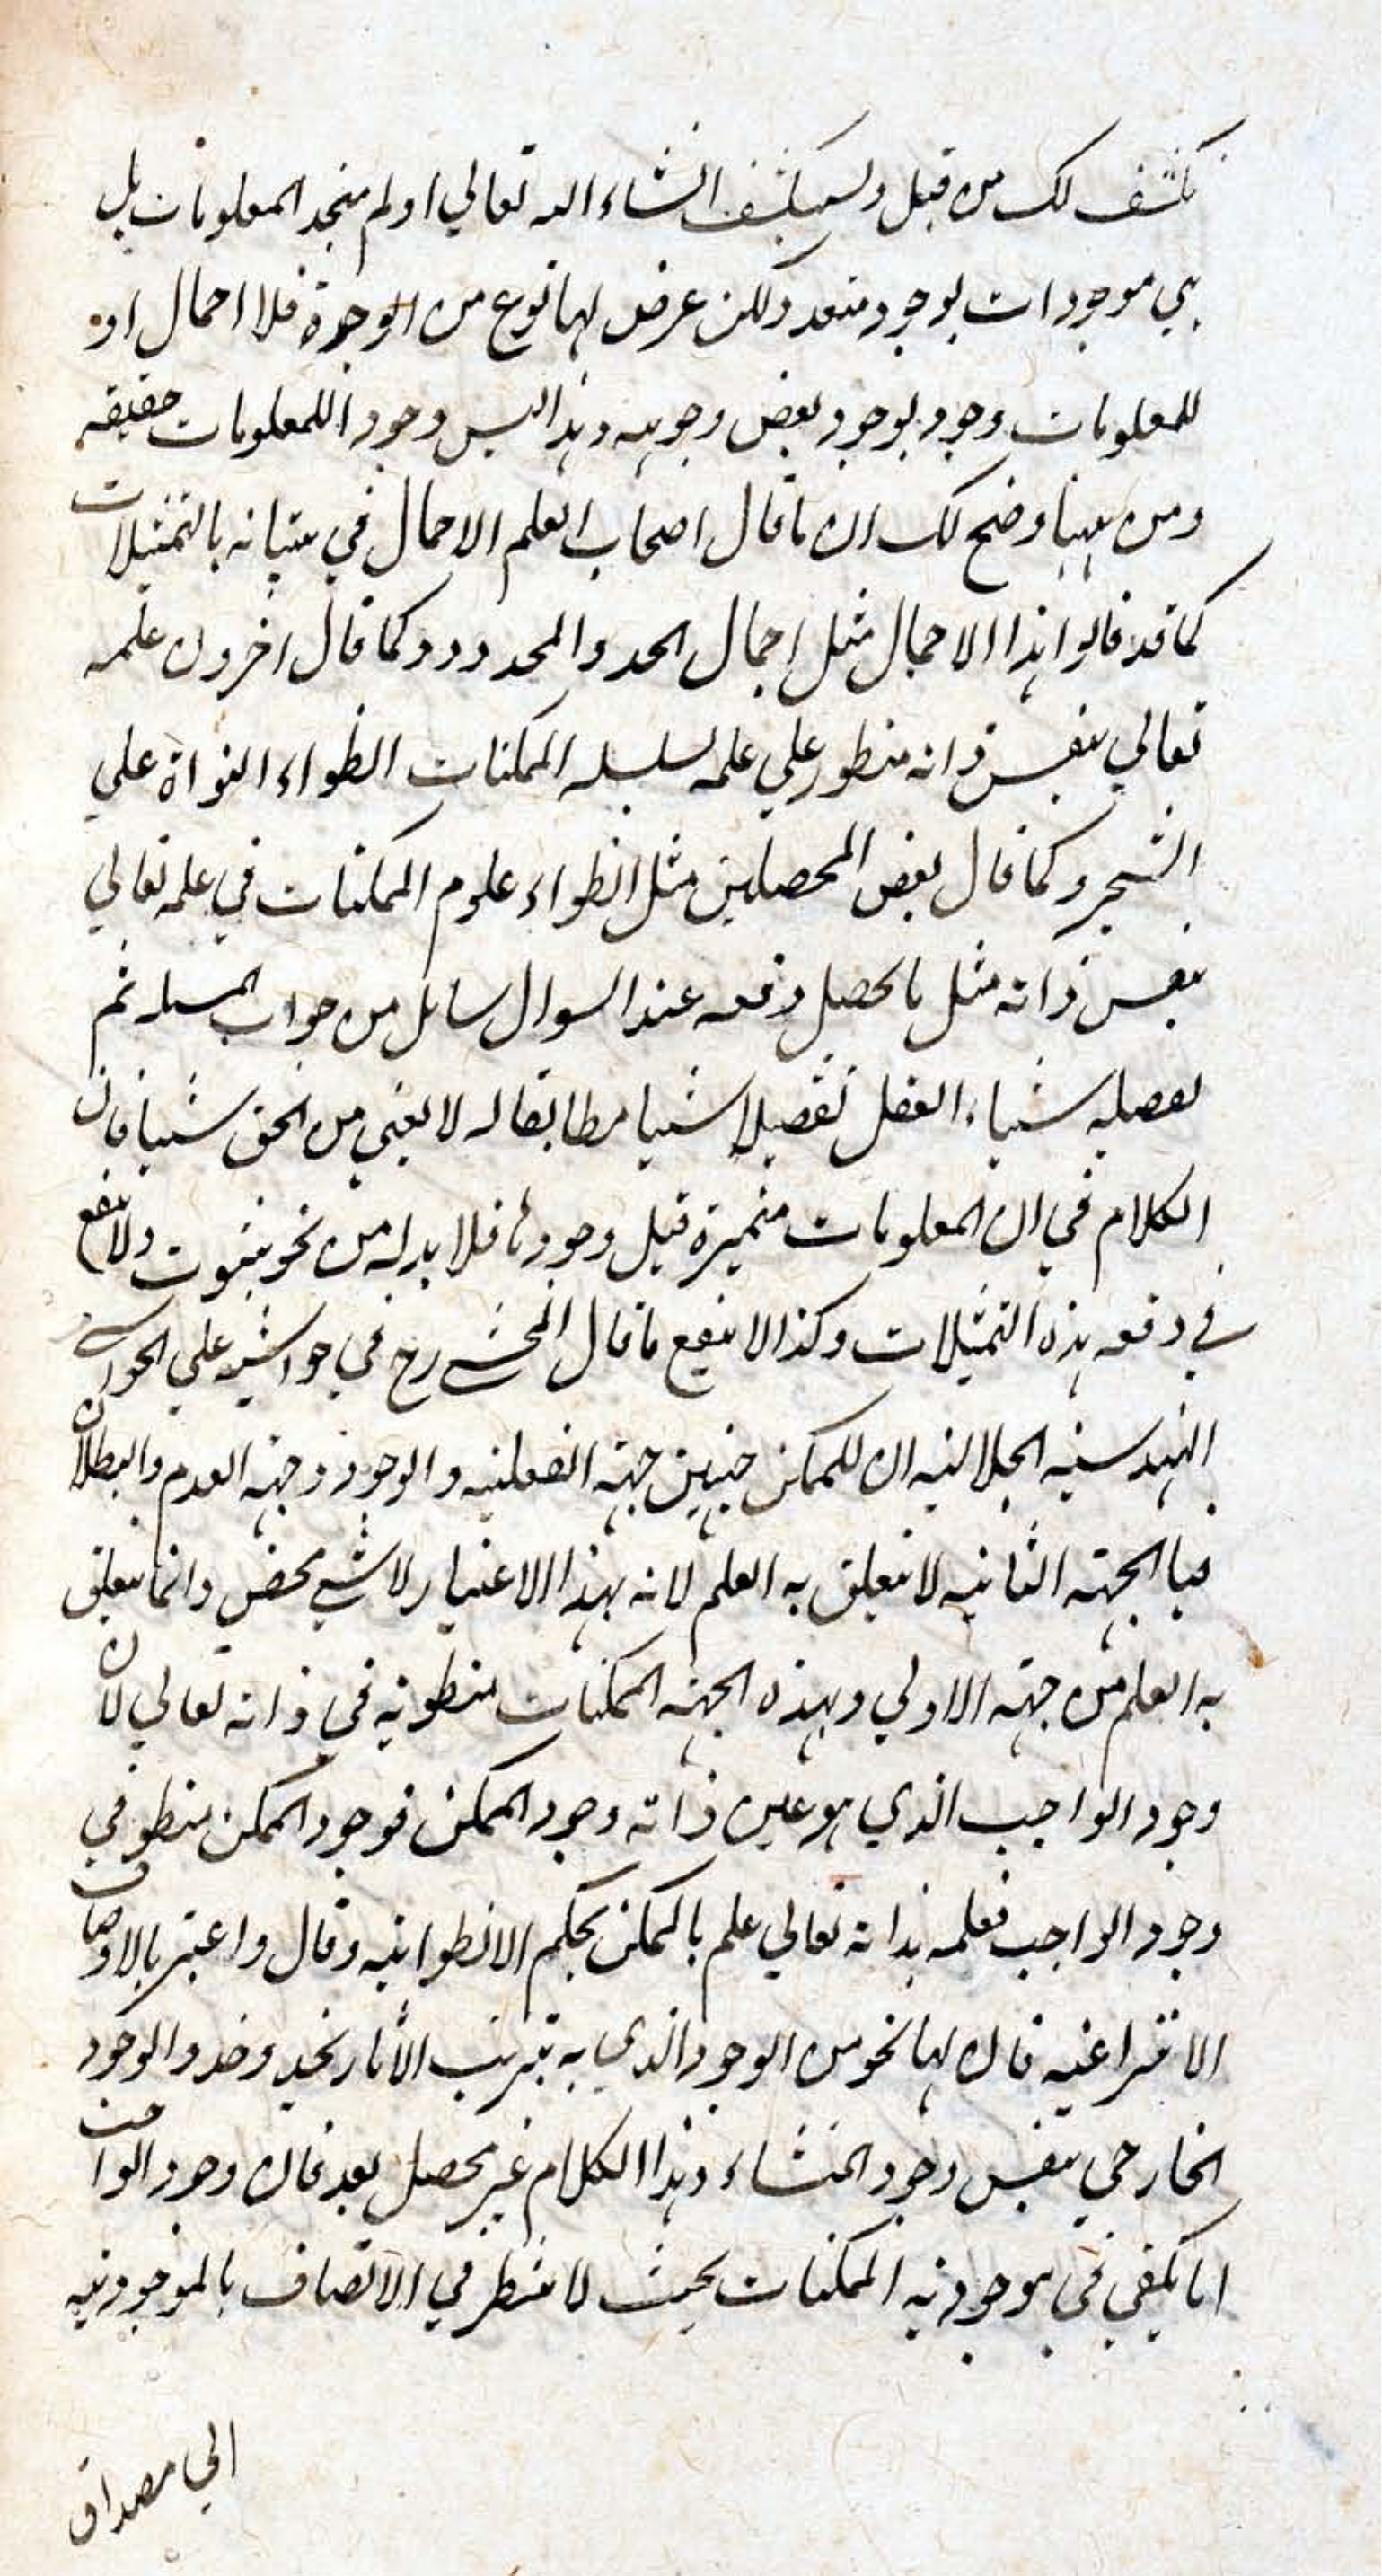 نكشف لك من قبل وسيكشف انشاء الله تعالي اولم يتحد المعلومات بل
هي موجودات بوجود متعدد ولكن عرض لها نوع من الوحدة فلا اجمال او
للمعلومات وجود بوجود بعض وجوهه وهذا ليس وجودا للمعلومات حقيقه
ومن ههنا وضح لك ان ما قال اصحاب العلم الاجمال في بيانه بالتمثيلات
كما قد قالوا هذا الاجمال مثل اجمال الحد والمحدود وكما قال اخرون علمه
تعالي بنفس ذاته منطو علي علمه لسلسله الممكنات انطواء النواة علي
الشجر وكما قال بعض المحصلين مثل انطواء علوم الممكنات في علمه تعالي
بنفس ذاته مثل ما يحصل دفعه عند السوال سائل من جواب المسله ثم
يفصله شياء العقل تفصيلا شيا مطابقا له لا يغني من الحق شيا فان
الكلام في ان المعلومات متميزة قبل وجودها فلا بد له من نحو ثبوت ولا ينفع
في دفعه هذه التمثيلات وكذا لا ينفع ما قال المحشي رح في حواشيه علي الحواشي
الهندسيه الجلاليه ان للممكن جهتين جهة الفعليه والوجود وجهه العدم والبطلان
فبا الجهته الثانيه لا يتعلق به العلم لانه بهذا الاعتبار لا شي محض وانما يتعلق
به العلم من جهته الاولي وبهذه الجهته الممكنات منطويه في ذاته تعالي لان
وجود الواجب الذي هو عين ذاته وجود الممكن فوجود الممكن منطو في
وجود الواجب فعلمه بذاته تعالي علم بالممكن بحكم الانطوائيه وقال واعتبر بالاوصاف
الانتزاعيه فان لها نحو من الوجود الذي به يترتب الاثار نحيد وحد والوجود
الخارجي بنفس وجود المنشاء وهذا الكلام غير محصل بعد فان وجود الواجب
اما يكفي في موجوديه الممكنات بحيث لا ينتظر في الاتصاف بالموجوديه
الي مصداق